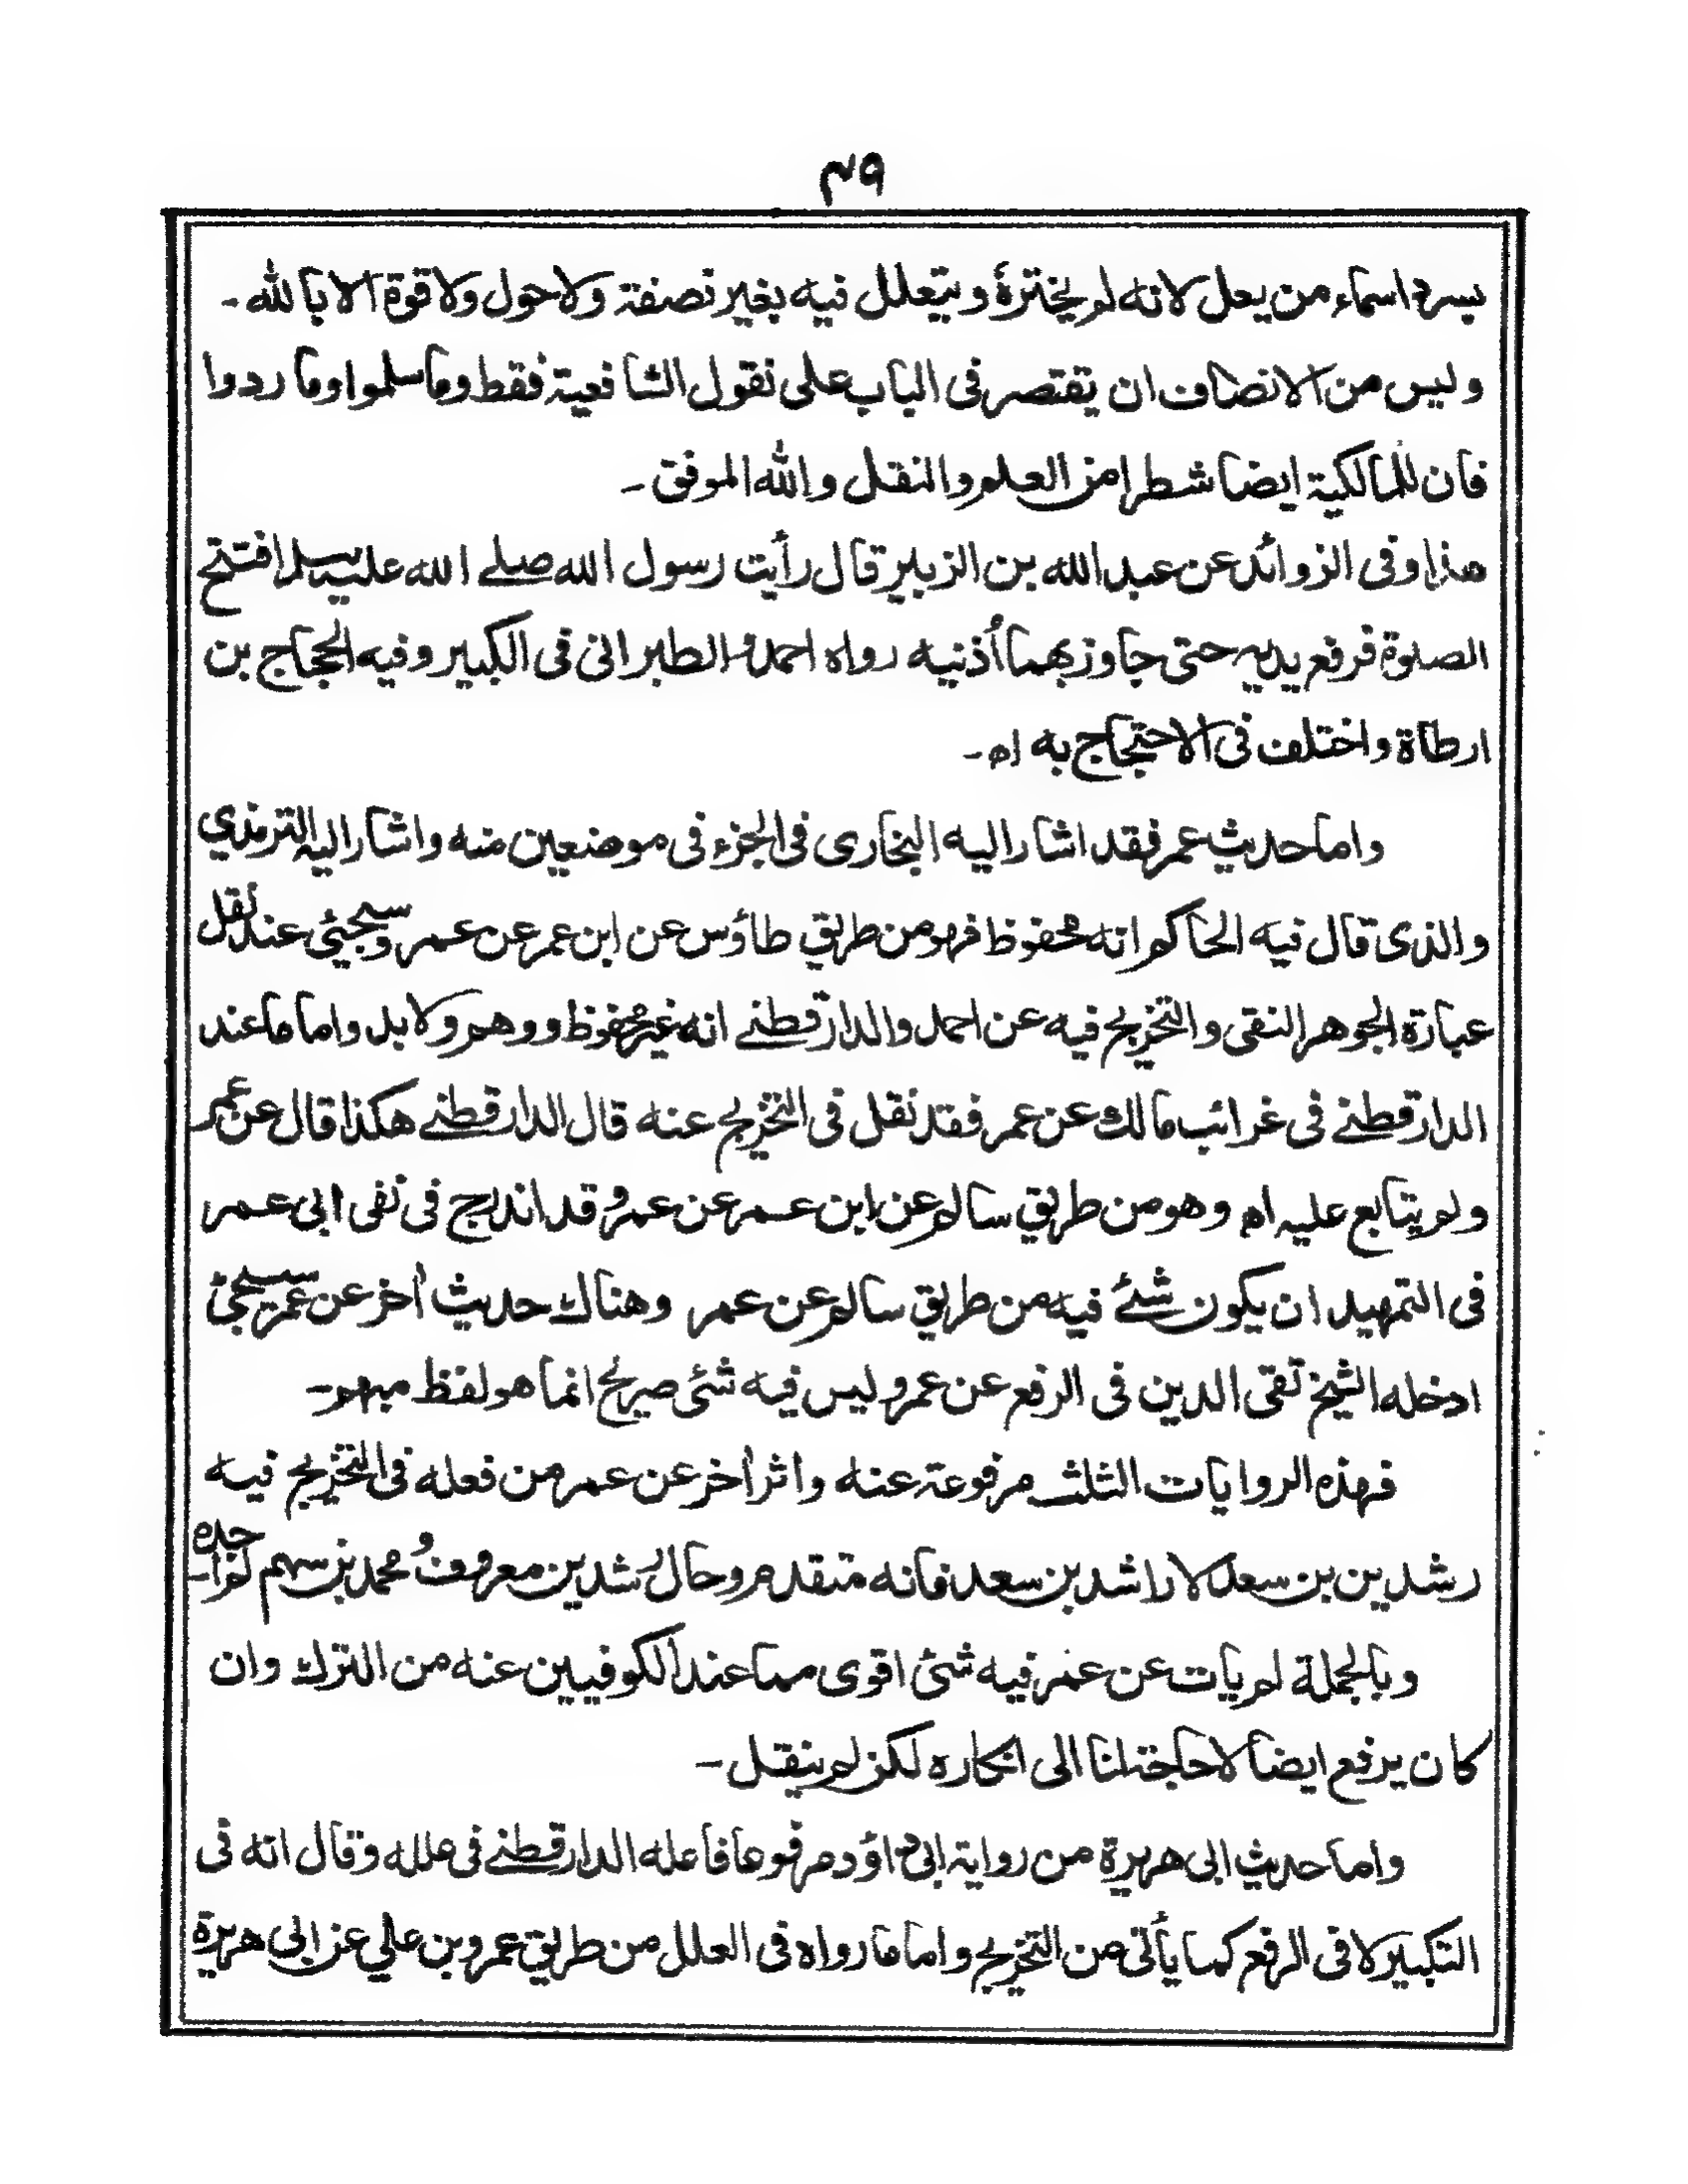 ۴۹
يسرد اسماء من يعل لانه لم يخترهٔ ويتعلل فيه بغير نصفة ولاحول ولاقوة الا بالله -
وليس من الانصاف ان يقتصر فى الباب على نقول الشافعية فقط وما سلموا وما ردوا
فان للمالكية ايضا شطرا من العلم والنقل والله الموفق -
هذا وفى الزوائد عن عبد الله بن الزبير قال رأيت رسول الله صلے الله عليه سلم افتتح
الصلوة فرفع يديه حتى جاوز بهما أذنيه رواه احمد و الطبرانى فى الكبير وفيه الحجاج بن
ارطاة واختلف فى الاحتجاج به اه -
واما حديث عمر فقد اشار اليه البخارى فى الجزء فى موضعين منه واشار اليه الترمذي
والذى قال فيه الحاكم انه محفوظ فهو من طريق طاؤس عن ابن عمر عن عمر وسيجيئ عند نقل
عبارة الجوهر النقى والتخريج فيه عن احمد والدارقطنے انه غير محفوظ ووهم ولابد واما ما عند
الدارقطنے فى غرائب مالك عن عمر فقد نقل فى التخريج عنه قال الدارقطنے هكذا قال عن عمر
ولم يتابع عليه اه وهو من طريق سالم عن ابن عمر عن عمر و قد اندرج فى نفى ابى عمر
فى التمهيد ان يكون شئے فيه من طريق سالم عن عمر وهناك حديث اٰخر عن عمر سيجئ
ادخله الشيخ تقى الدين فى الرفع عن عمر وليس فيه شئ صريح انما هو لفظ مبهم -
فهذه الروايات الثلث مرفوعة عنه واثر اٰخر عن عمر من فعله فى التخريج فيه
رشدين بن سعد لا راشد بن سعد فانه متقدم وحال رشدين معروف و محمد بن سهم لم اجده -
وبالجملة لم يات عن عمر فيه شئ اقوى مما عند الكوفيين عنه من الترك وان
كان يرفع ايضا لاحاجة لنا الى انكاره لكن لم ينقل -
واما حديث ابى هريرة من رواية ابى داؤد مرفوعا فاعله الدارقطنے فى علله وقال انه فى
التكبير لا فى الرفع كما يأتى من التخريج واما ما رواه فى العلل من طريق عمرو بن علي عن ابى هريرة